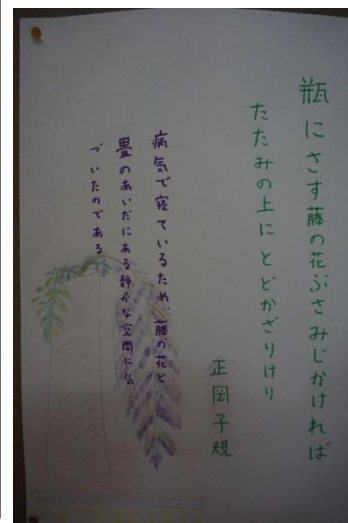 瓶にさす藤の花ぶさみじかければ
たたみの上にとどかざりけり
正岡子規
病気で寝ているため、藤の花と
畳のあいだにある静かな空間に気
づいたのである